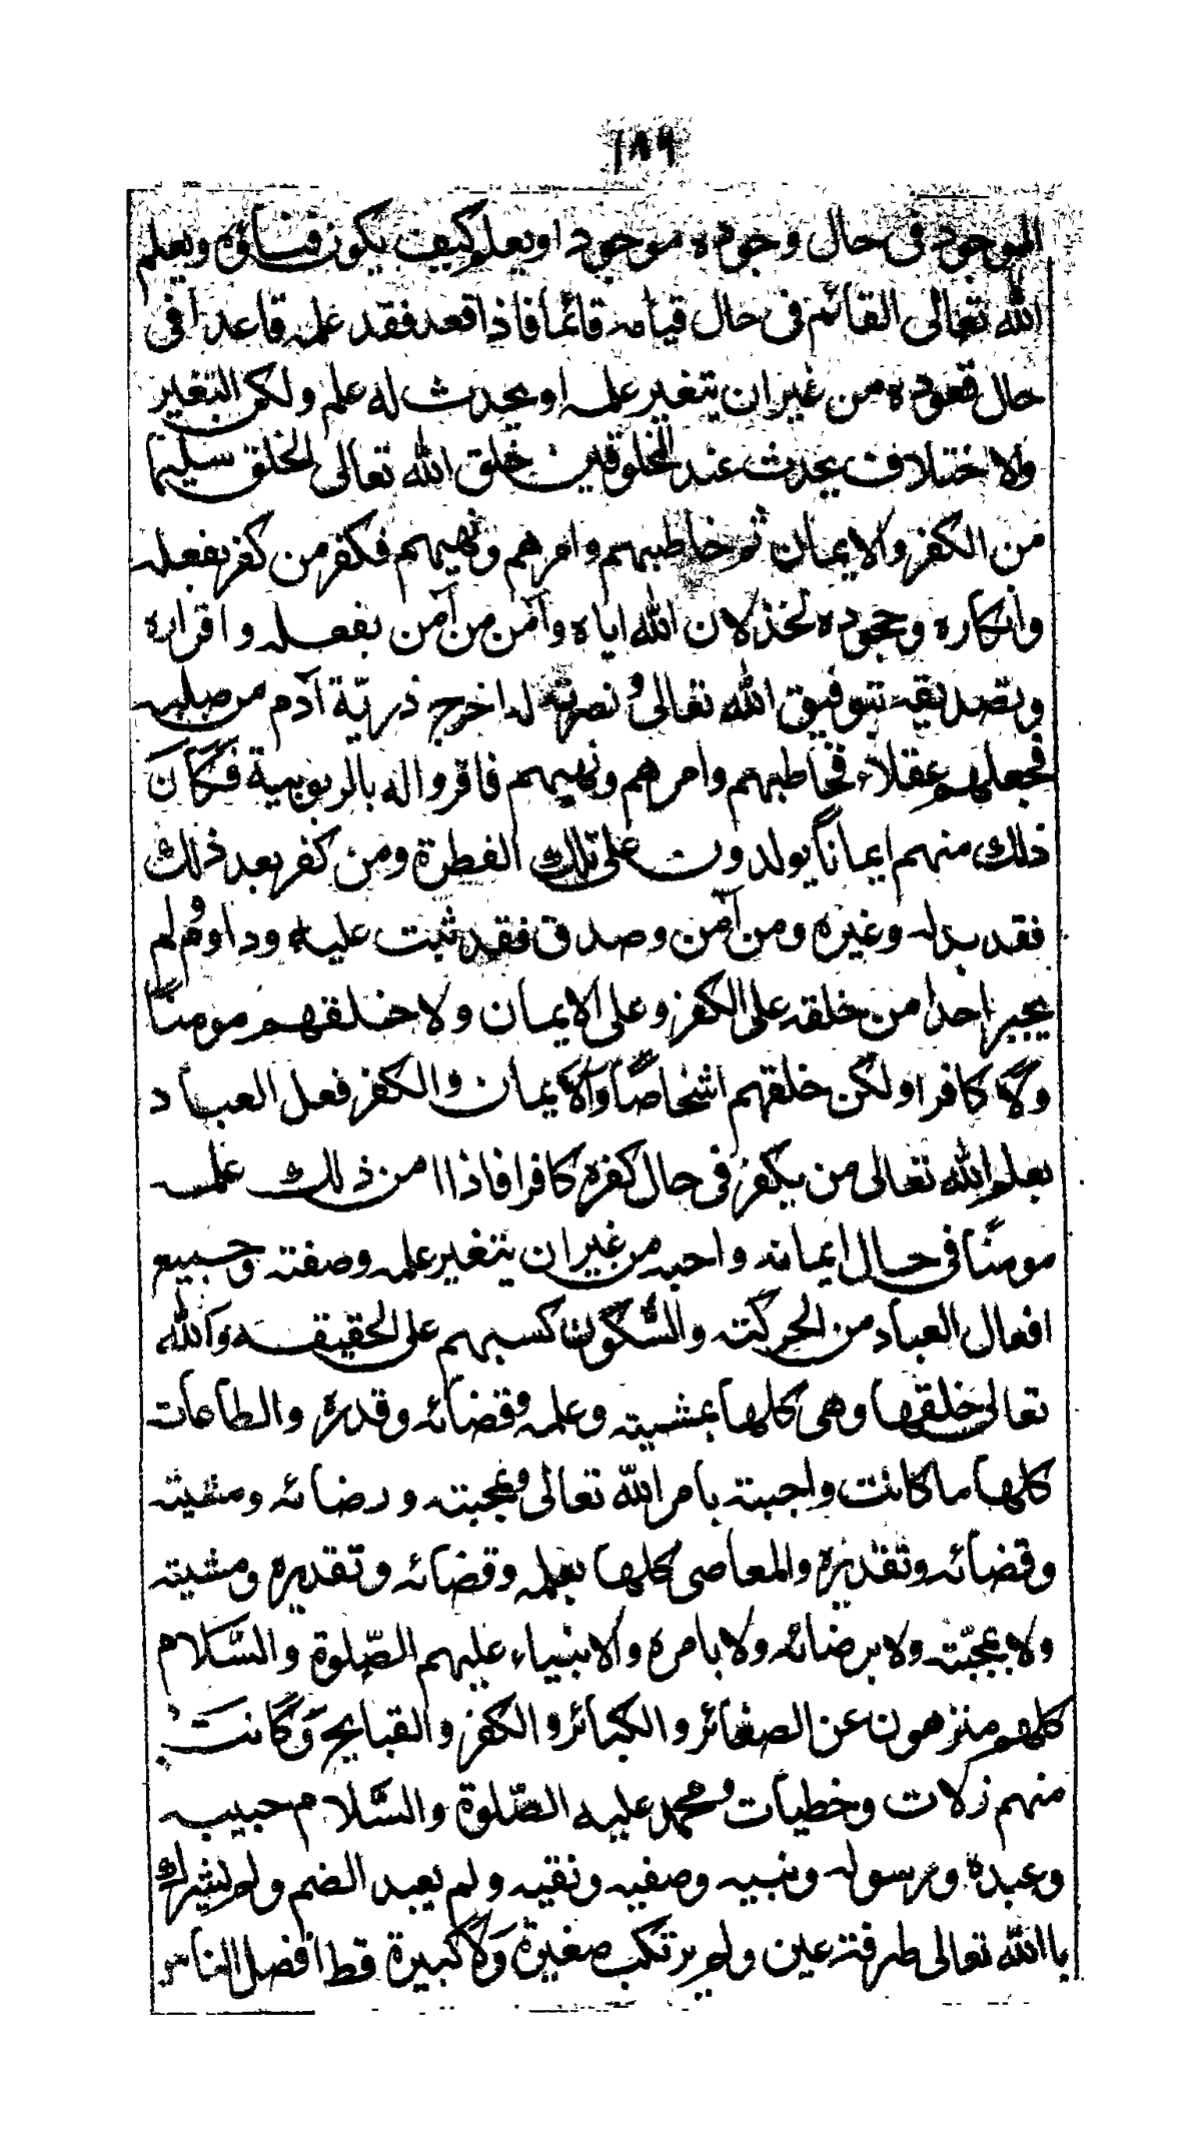 ١٨٩
الموجود فى حال وجوده موجودا ويعلم كيف يكون فناؤه ويعلم
الله تعالى القائم فى حال قيامه قائما فاذا قعد فقد علمه قاعدا فى
حال قعوده من غير ان يتغير علمه او يحدث له علم ولكن التغير
ولاختلاف يحدث عند المخلوقين خلق الله تعالى الخلق سليما
من الكفر والايمان ثم خاطبهم وامرهم ونهيهم فكفر من كفر بفعله
وانكاره وجحوده بخذلان الله اياه وآمن من آمن بفعله واقراره
وتصديقه بتوفيق الله تعالى ونصرته له اخرج ذريّة آدم من صلبه
فجعلهم عقلاء فخاطبهم وامرهم ونهيهم فاقروا له بالربوبية فكان
ذلك منهم ايمانًا يولدون على تلك الفطرة ومن كفر بعد ذلك
فقد بدله وغيره ومن آمن وصدق فقد ثبت عليه وداوم ولم
يجبر احدا من خلقه على الكفر وعلى الايمان ولا خلقهم مومنًا
ولا كافرا ولكن خلقهم اشخاصًا والايمان والكفر فعل العباد
يعلم الله تعالى من يكفر فى حال كفره كافرا فاذا امن ذلك علمه
مومنًا فى حال ايمانه واحبه من غير ان يتغير علمه وصفته وجميع
افعال العباد من الحركته والسّكون كسبهم على الحقيقه والله
تعالى خلقها وهى كلها بمشيته وعلمه وقضائه وقدره والطاعات
كلها ما كانت واجبته بامر الله تعالى وبمحبته ورضائه ومشيته
وقضائه وتقديره والمعاصى كلها بعلمه وقضائه وتقديره ومشيته
ولا بمحبّته ولا برضائه ولا بامره والانبياء عليهم الصّلوة والسّلام
كلهم منزهون عن الصغائر والكبائر والكفر والقبايح وكانت
منهم زلات وخطيات ومحمد عليه الصّلوة والسّلام حبيبه
وعبده ورسوله ونبيه وصفيه ونقيه ولم يعبد الصنم ولم يشرك
باالله تعالى طرفته عين ولم يرتكب صغيرة ولا كبيرة قط افضل الناس